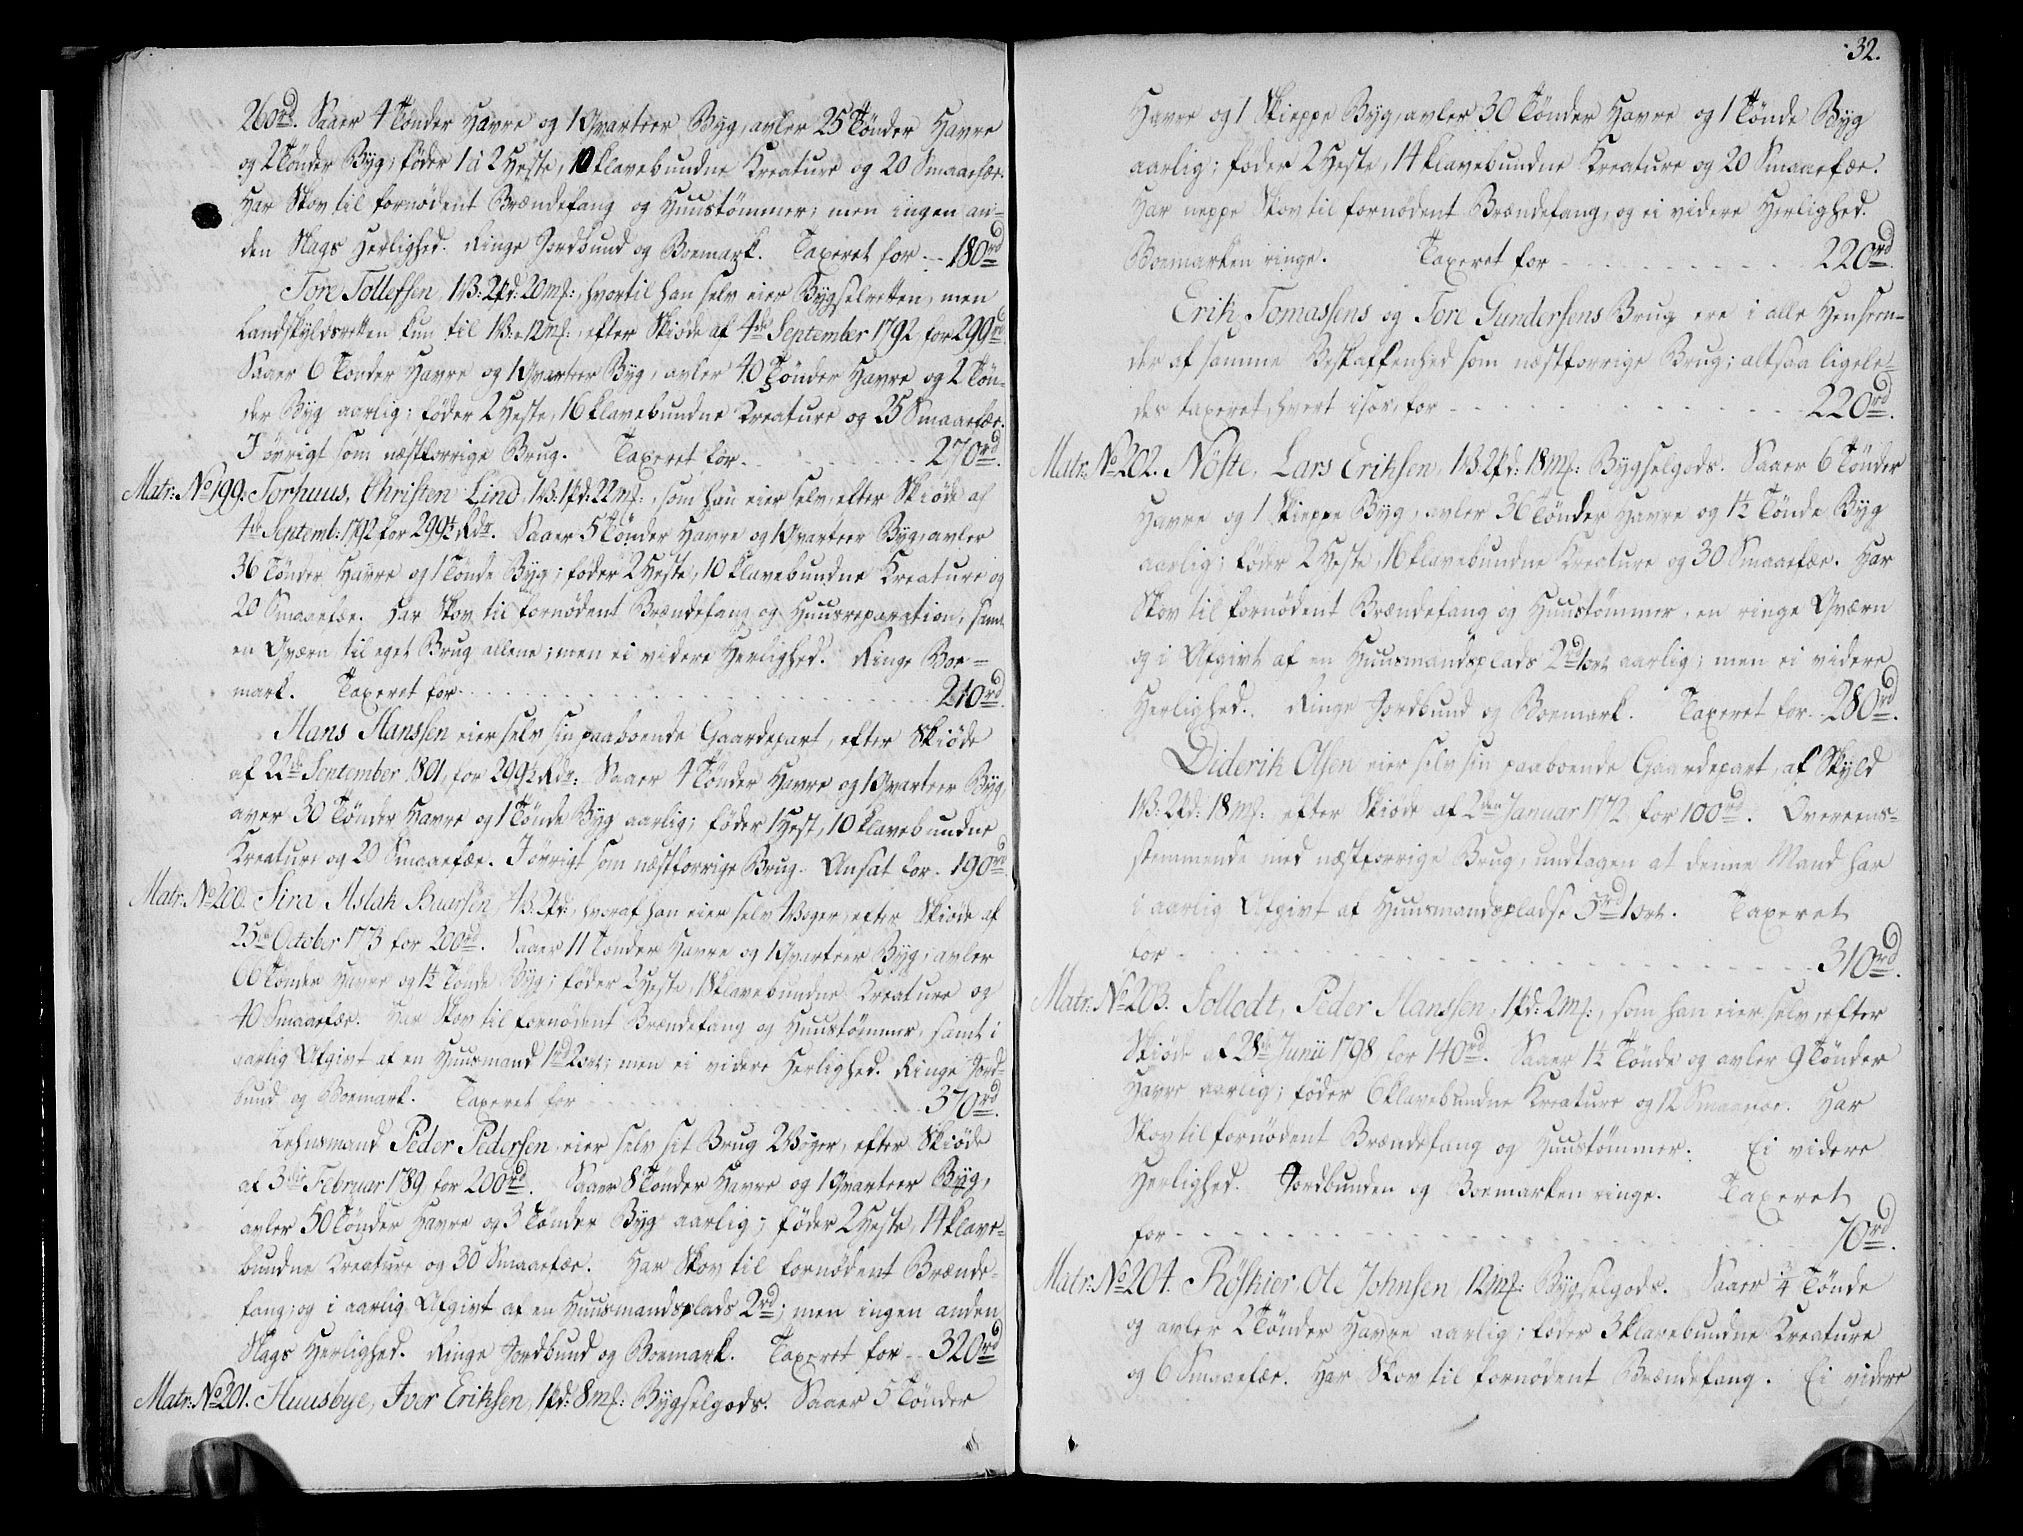 260rd. Saaer 4 Tönder Havre og 1 Qvarteer Byg, avler 25 Tönder Havre
og 2 Tönder Byg; föder 1 à 2 Heste, 10 klavebundne Kreature og 20 Smaaefæe.
Har Skov til fornødent Brændefang og Huustömmer; men ingen an-
den Slags Herlighed. Ringe Jordbund og Boemark. Taxeret for 180rd
Tore Tollefsen, 1B: 2pd: 20mk:, hvortil han selv eier Bygselretten, men
Landskyldsretten kun til 1B: 12mk:, efter Skiöde af 4de September 1792 for 299rd.
Saaer 6 Tönder Havre og 1 Qvarteer Byg, avler 40 Tönder Havre og 2 Tön-
der Byg aarlig; föder 2 Heste, 16 klavebundne Kreature og 25 Smaaefæe.
I övrigt som næstforrige Brug. Taxeret for 270rd.
Matr: No 199. Torhuus, Christen Lind, 1B: 1pd: 22mk:, som han eier selv, efter Skiöde af
4de Septemb: 1792 for 299½ Rdr. Saaer 5 Tönder Havre og 1 Qvarteer Byg, avler
36 Tönder Havre og 1 Tönde Byg; föder 2 Heste, 10 klavebundne Kreature og
20 Smaaefæe. Har Skov til fornödent Brændefang og Huusreparation, samt
en Qværn til eget Brug allene; men ei videre Herlighed. Ringe Boe-
mark. Taxeret for 210rd.
Hans Hanssen eier selv sin paaboende Gaardepart, efter Skiöde
af 22de September 1801, for 299½ Rdr: Saaer 4 Tönder Havre og 1 Qvarteer Byg,
aver 30 Tönder Havre og 1 Tönde Byg aarlig; föder 1 Hest, 10 klavebundne
Kreature og 20 Smaaefæe. I övrigt som næstforrige Brug. Ansat for 190rd
Matr: No 200. Sira Aslak Buersön, 4B: 2pd:, hvoraf han eier selv 4 Voger, efter Skiöde af
25de October 1773 for 200rd. Saaer 11 Tönder Havre og 1 Qvarteer Byg, avler
66 Tönder Havre og 1½ Tönde Byg; föder 2 Heste, 18 klavebundne Kreature og
40 Smaaefæe. Har Skov til fornödent Brændefang og Huustömmer, samt i
aarlig Afgivt af en Huusmand 1rd 2ort; men ei videre Herlighed. Ringe Jord-
bund og Boemark. Taxeret for 370rd.
Lehnsmand Peder Pedersen eier selv sit Brug 2 Voger, efter Skiöde
af 3die Februar 1789 for 200rd. Saaer 8 Tönder Havre og 1 Qvarteer Byg,
avler 50 Tönder Havre og 3 Tönder Byg aarlig; föder 2 Heste, 14 klave-
bundne Kreature og 30 Smaaefæe. Har Skov til fornödent Brænde-
fang, og i aarlig Afgivt af en Huusmandsplads 2rd; men ingen anden
Slags Herlighed. Ringe Jordbund og Boemark. Taxeret for 320rd
Matr: No 201. Huusbye, Iver Eriksen, 1pd: 8mk: Bygselgods. Saaer 5 Tönder
32.
Havre og 1 Skieppe Byg, avler 30 Tönder Havre og 1 Tönde Byg
aarlig; föder 2 Heste, 14 klavebundne Kreature og 20 Smaaefæe.
Har neppe Skov til fornödent Brændefang, og ei videre Herlighed.
Boemarken ringe. Taxeret for 220rd.
Erik Tomassens og Tore Gundersens Brug ere i alle Henseen-
der af samme Beskaffenhed som næstforrige Brug; altsaa ligele-
des taxeret, hvert isör, for 220rd.
Matr: No 202. Nöste. Lars Eriksen, 1B 2pd: 18mk: Bygselgods. Saaer 6 Tönder
Havre og 1 Skieppe Byg, avler 36 Tönder Havre og 1½ Tönde Byg
aarlig; föder 2 Heste, 16 klavebundne Kreature og 30 Smaaefæe. Har
Skov til fornödent Brændefang og Huustömmer, en ringe Qværn
og i Afgivt af en Huusmandsplads 2rd 1ort aarlig; men ei videre
Herlighed. Ringe Jordbund og Boemark. Taxeret for 280rd.
Diderik Olsen eier selv sin paaboende Gaardepart, af Skyld
1B: 2pd: 18mk: efter Skiöde af 2den Januar 1772 for 100rd. Overeens-
stemmende med næstforrige Brug, undtagen at denne Mand har
i aarlig Afgivt af Huusmandspladse 5rd 1ort. Taxeret
for 310rd.
Matr: No 203. Tollodt, Peder Hanssen, 1pd: 2mk:, som han eier selv, efter
Skiöde af 28de Junii 1798 for 140rd. Saaer 1½ Tönde og avler 9 Tönder
Havre aarlig; föder 6 klavebundne Kreature og 12 Smaaefæe. Har
Skov til fornödent Brændefang og Huustömmer. Ei videre
Herlighed. Jordbunden og Boemarken ringe. Taxeret
for 70rd.
Matr: No 204. Röskier, Ole Johnsen, 12mk: Bygselgods. Saaer ¾ Tönde
og avler 2 Tönder Havre aarlig; föder 3 klavebundne Kreature
og 6 Smaaefæe. Har Skov til fornödent Brændefang. Ei videre